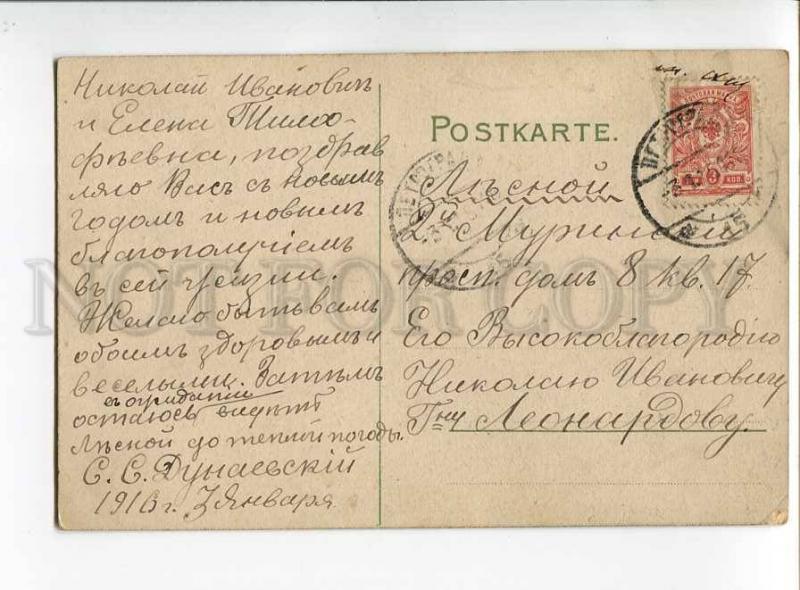 Николай Ивановичъ
и Елена Тимо-
фѣевна, поздрав
ляю Васъ съ новымъ
годомъ и новымъ
благополучіемъ
въ сей жизни.
Желаю быть вамъ
обоимъ здоровымъ и
веселыми. Затѣмъ
съ ожиданіи
остаюсь видѣть
Лѣсной до теплой погоды.
С. С. Дунаевскій
1916 г. 3 Января
POSTKARTE.
Лѣсной
2 Муринскій
просп. домъ 8 кв. 17.
Его Высокоблагородію
Николаю Ивановичу
Гну Леонардову.
ПОЧТОВАЯ МАРКА
3 КОП.
NOT FOR COPY